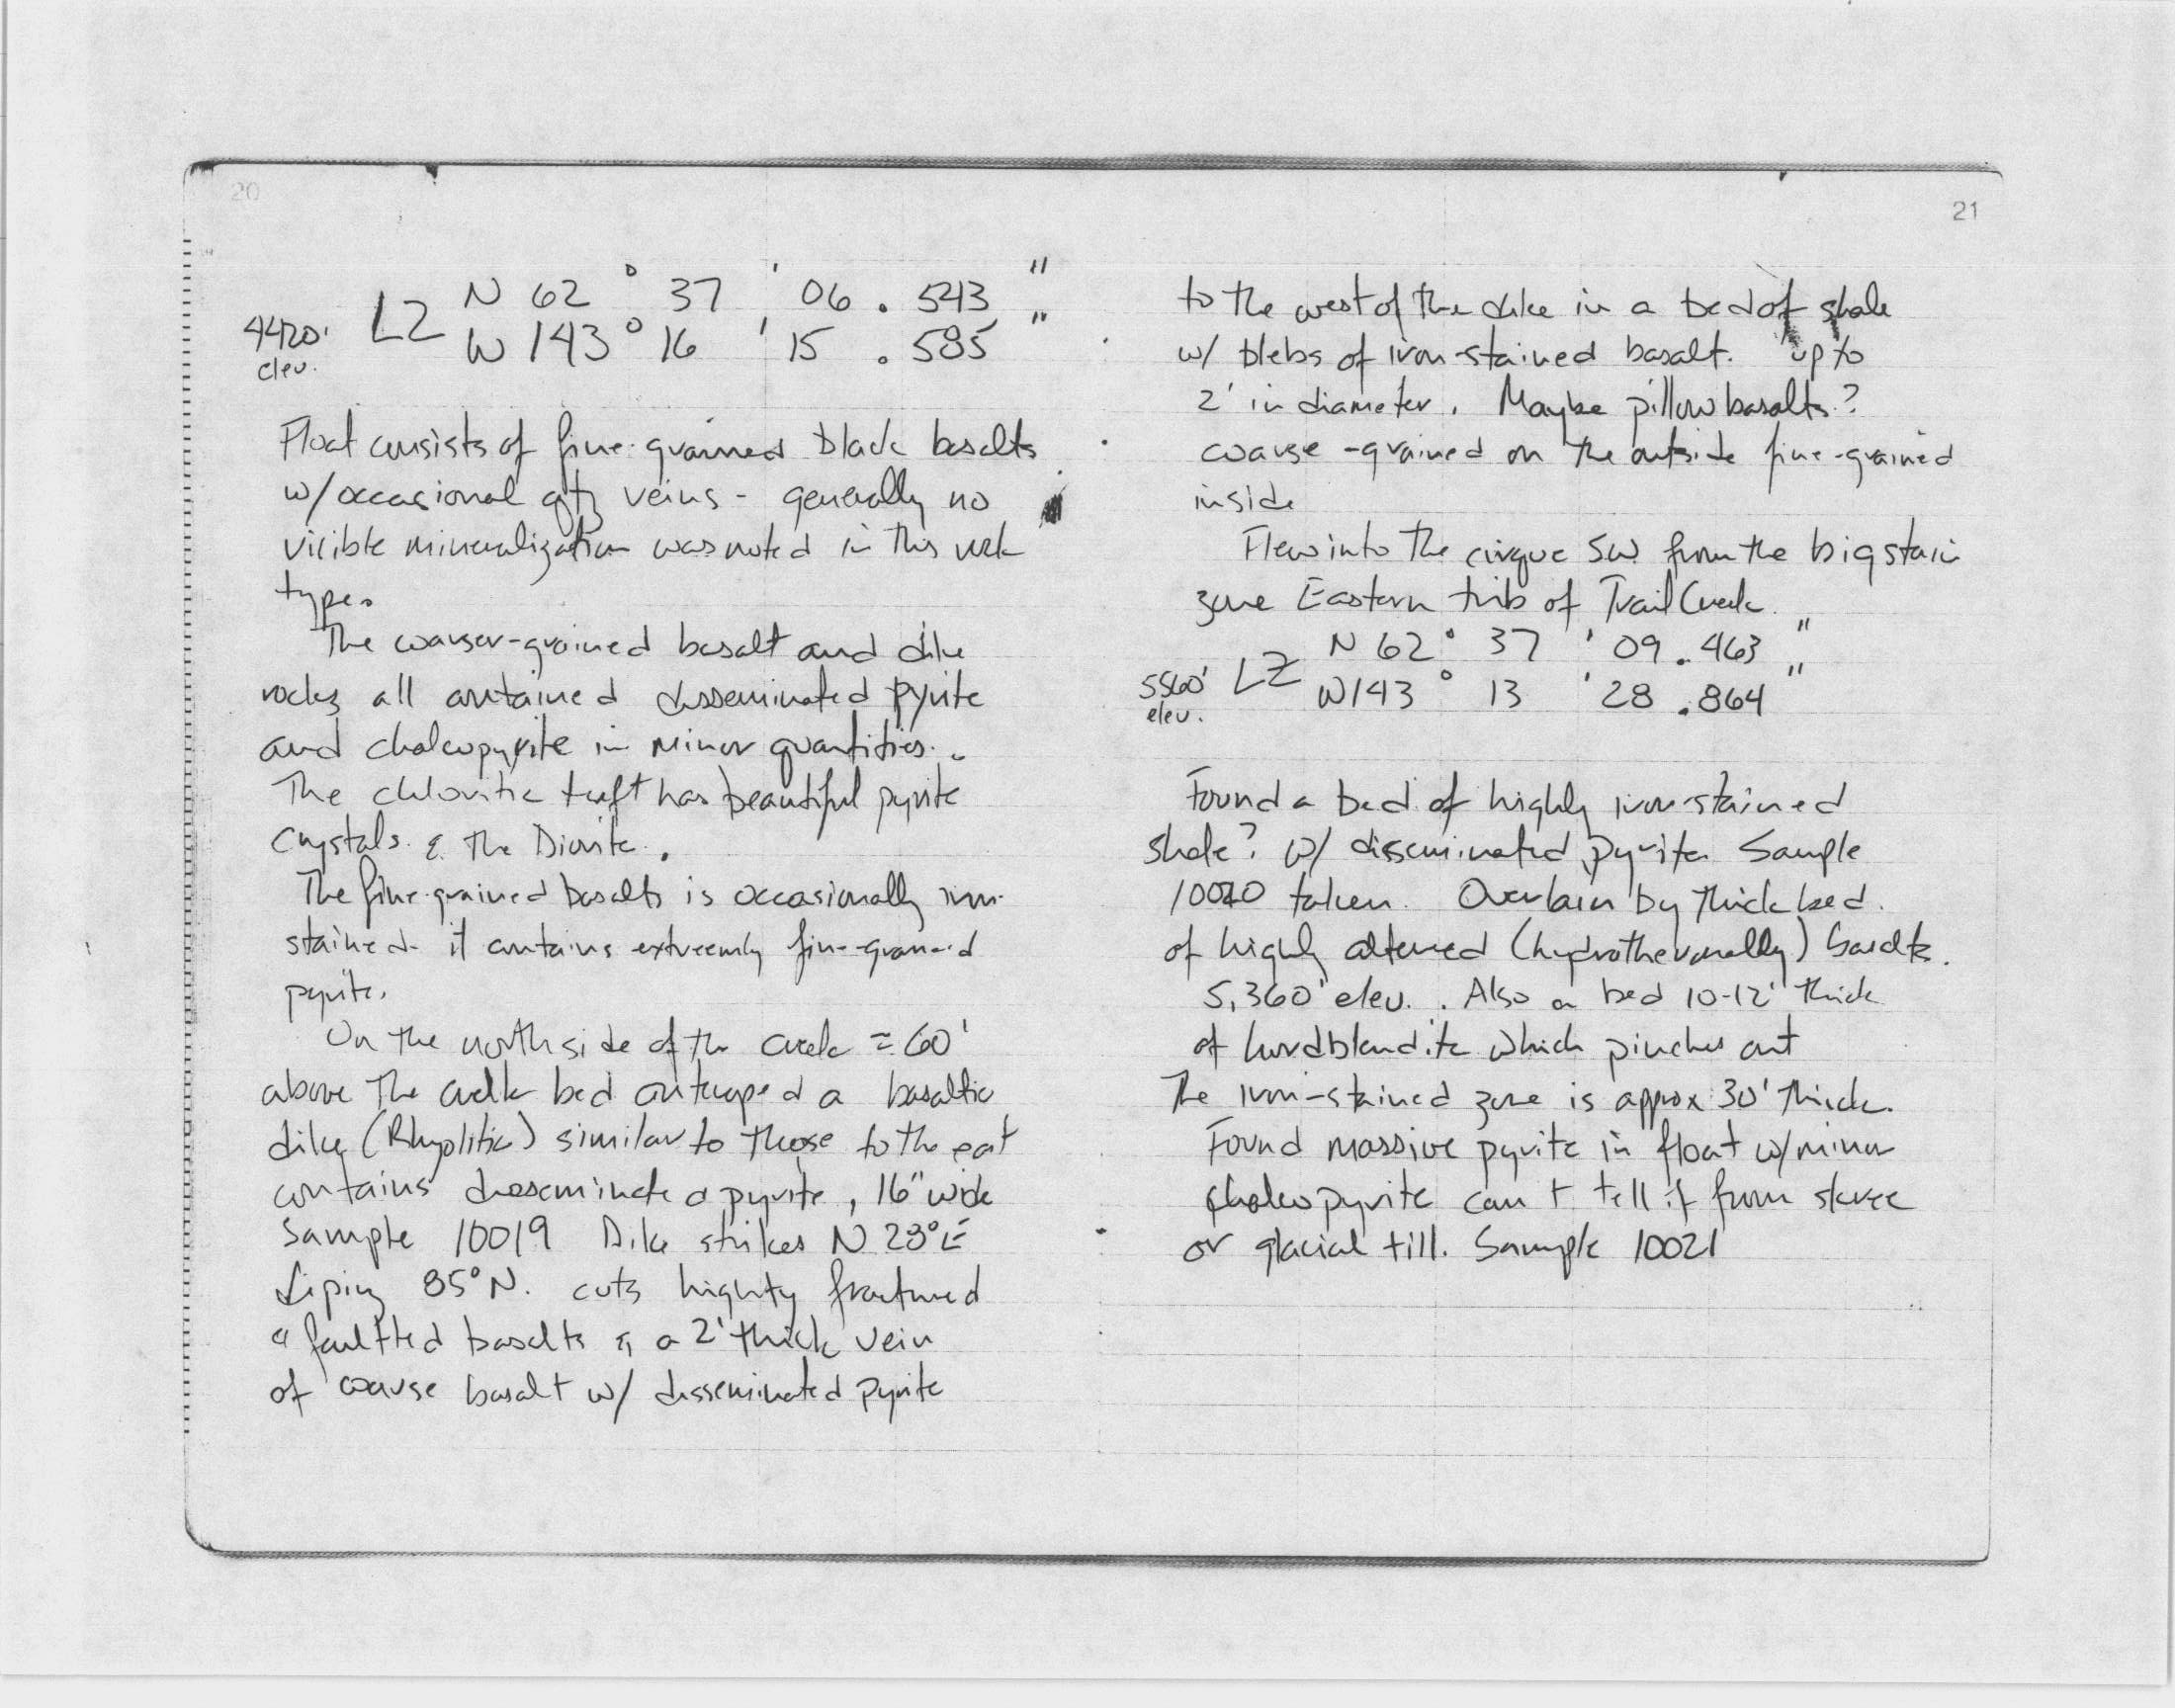 20
N 62 ° 37 ' 06 . 543 "
4420' LZ W 143 ° 16 ' 15 . 585 "
elev.
Float consists of fine-grained black basalts
w/occasional qtz veins - generally no
visible mineralization was noted in this rock
type.
The coarser-grained basalt and dike
rocks all contained disseminated pyrite
and chalcopyrite in minor quantities.
The chloritic tuff has beautiful pyrite
crystals. & the Diorite.
The fine-grained basalts is occasionally iron-
stained it contains extreemly fine-grained
pyrite.
On the north side of the creek ≈ 60'
above the creek bed outcroped a basaltic
dike (Rhyolitic) similar to those to the east
contains disseminated pyrite, 16" wide
Sample 10019 Dike strikes N 23° E
diping 85° N. cuts highly fractured
& faultted basalts & a 2' thick vein
of coarse basalt w/ disseminated pyrite
21
to the west of the dike in a bed of shale
w/ blebs of iron-stained basalt. up to
2' in diameter. Maybe pillow basalts?
coarse-grained on the outside fine-grained
inside
Flew into the cirque SW from the big stain
zone Eastern trib of Trail Creek.
N 62 ° 37 ' 09 . 463 "
5560' LZ W 143 ° 13 ' 28 . 864 "
elev.
Found a bed of highly iron-stained
shale? w/ disseminated pyrite. Sample
10020 taken. Overlain by thick bed
of highly altered (hydrothermally) basalts.
5,360' elev. . Also a bed 10-12' thick
of hordblendite which pinches out
The iron-stained zone is approx 30' thick.
Found massive pyrite in float w/minor
chalcopyrite can't tell if from skree
or glacial till. Sample 10021